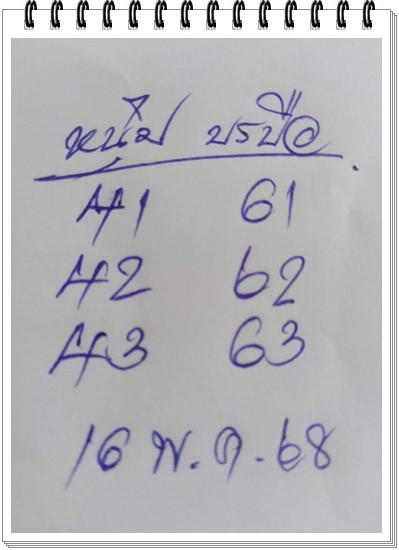 หนุ่ม บรบือ
41 61
42 62
43 63
16 พ.ค.68